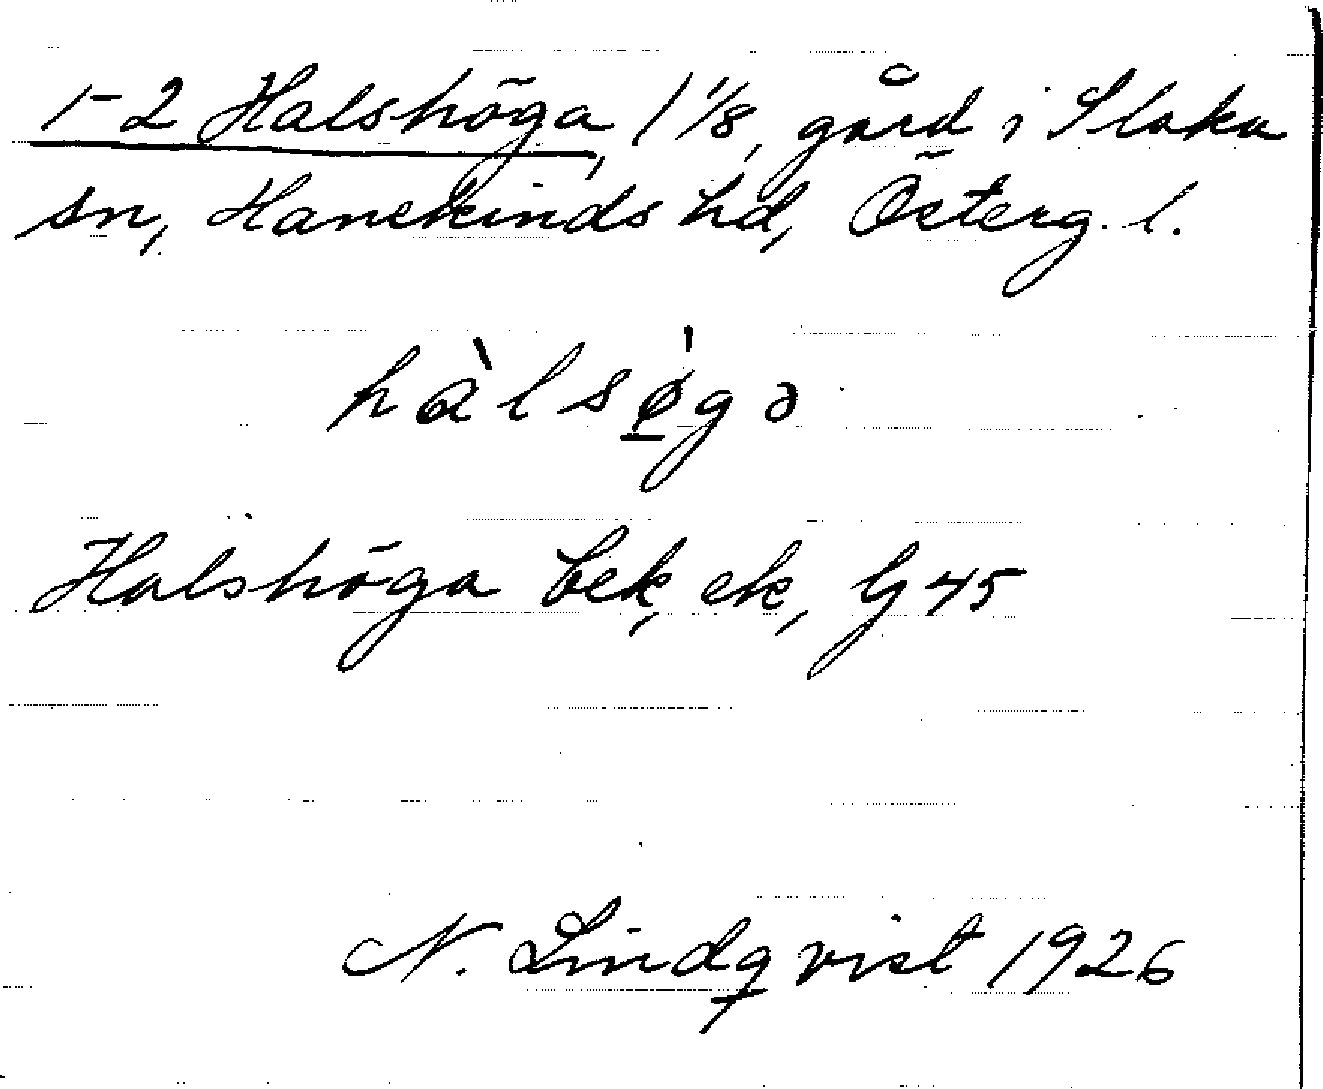 1-2 Halshöga, 1 1/8, gård i Slaka
sn, Hanekinds hd, Österg. l.
hàlsø̲̍gə
Halshöga bek, ek, Gj 45
N. Lindqvist 1926